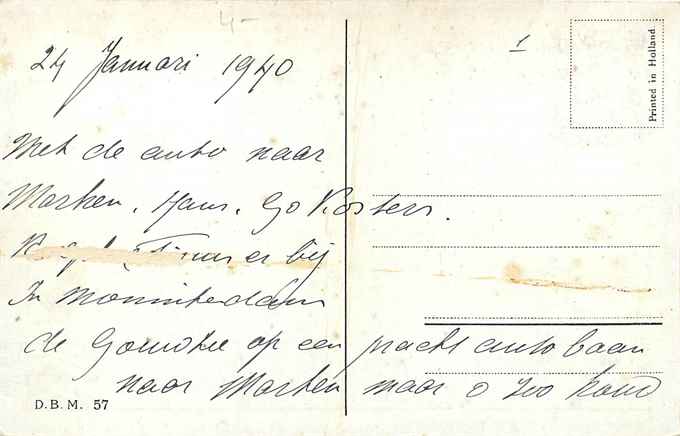 4-
1
Printed in Holland
24 Januari 1940
Met de auto naar
Marken. Hans. Go Kosters.
er bij
In Monninkendam
de Gouwzee op een pracht autobaan
naar Marken maar o zoo koud
D.B.M. 57